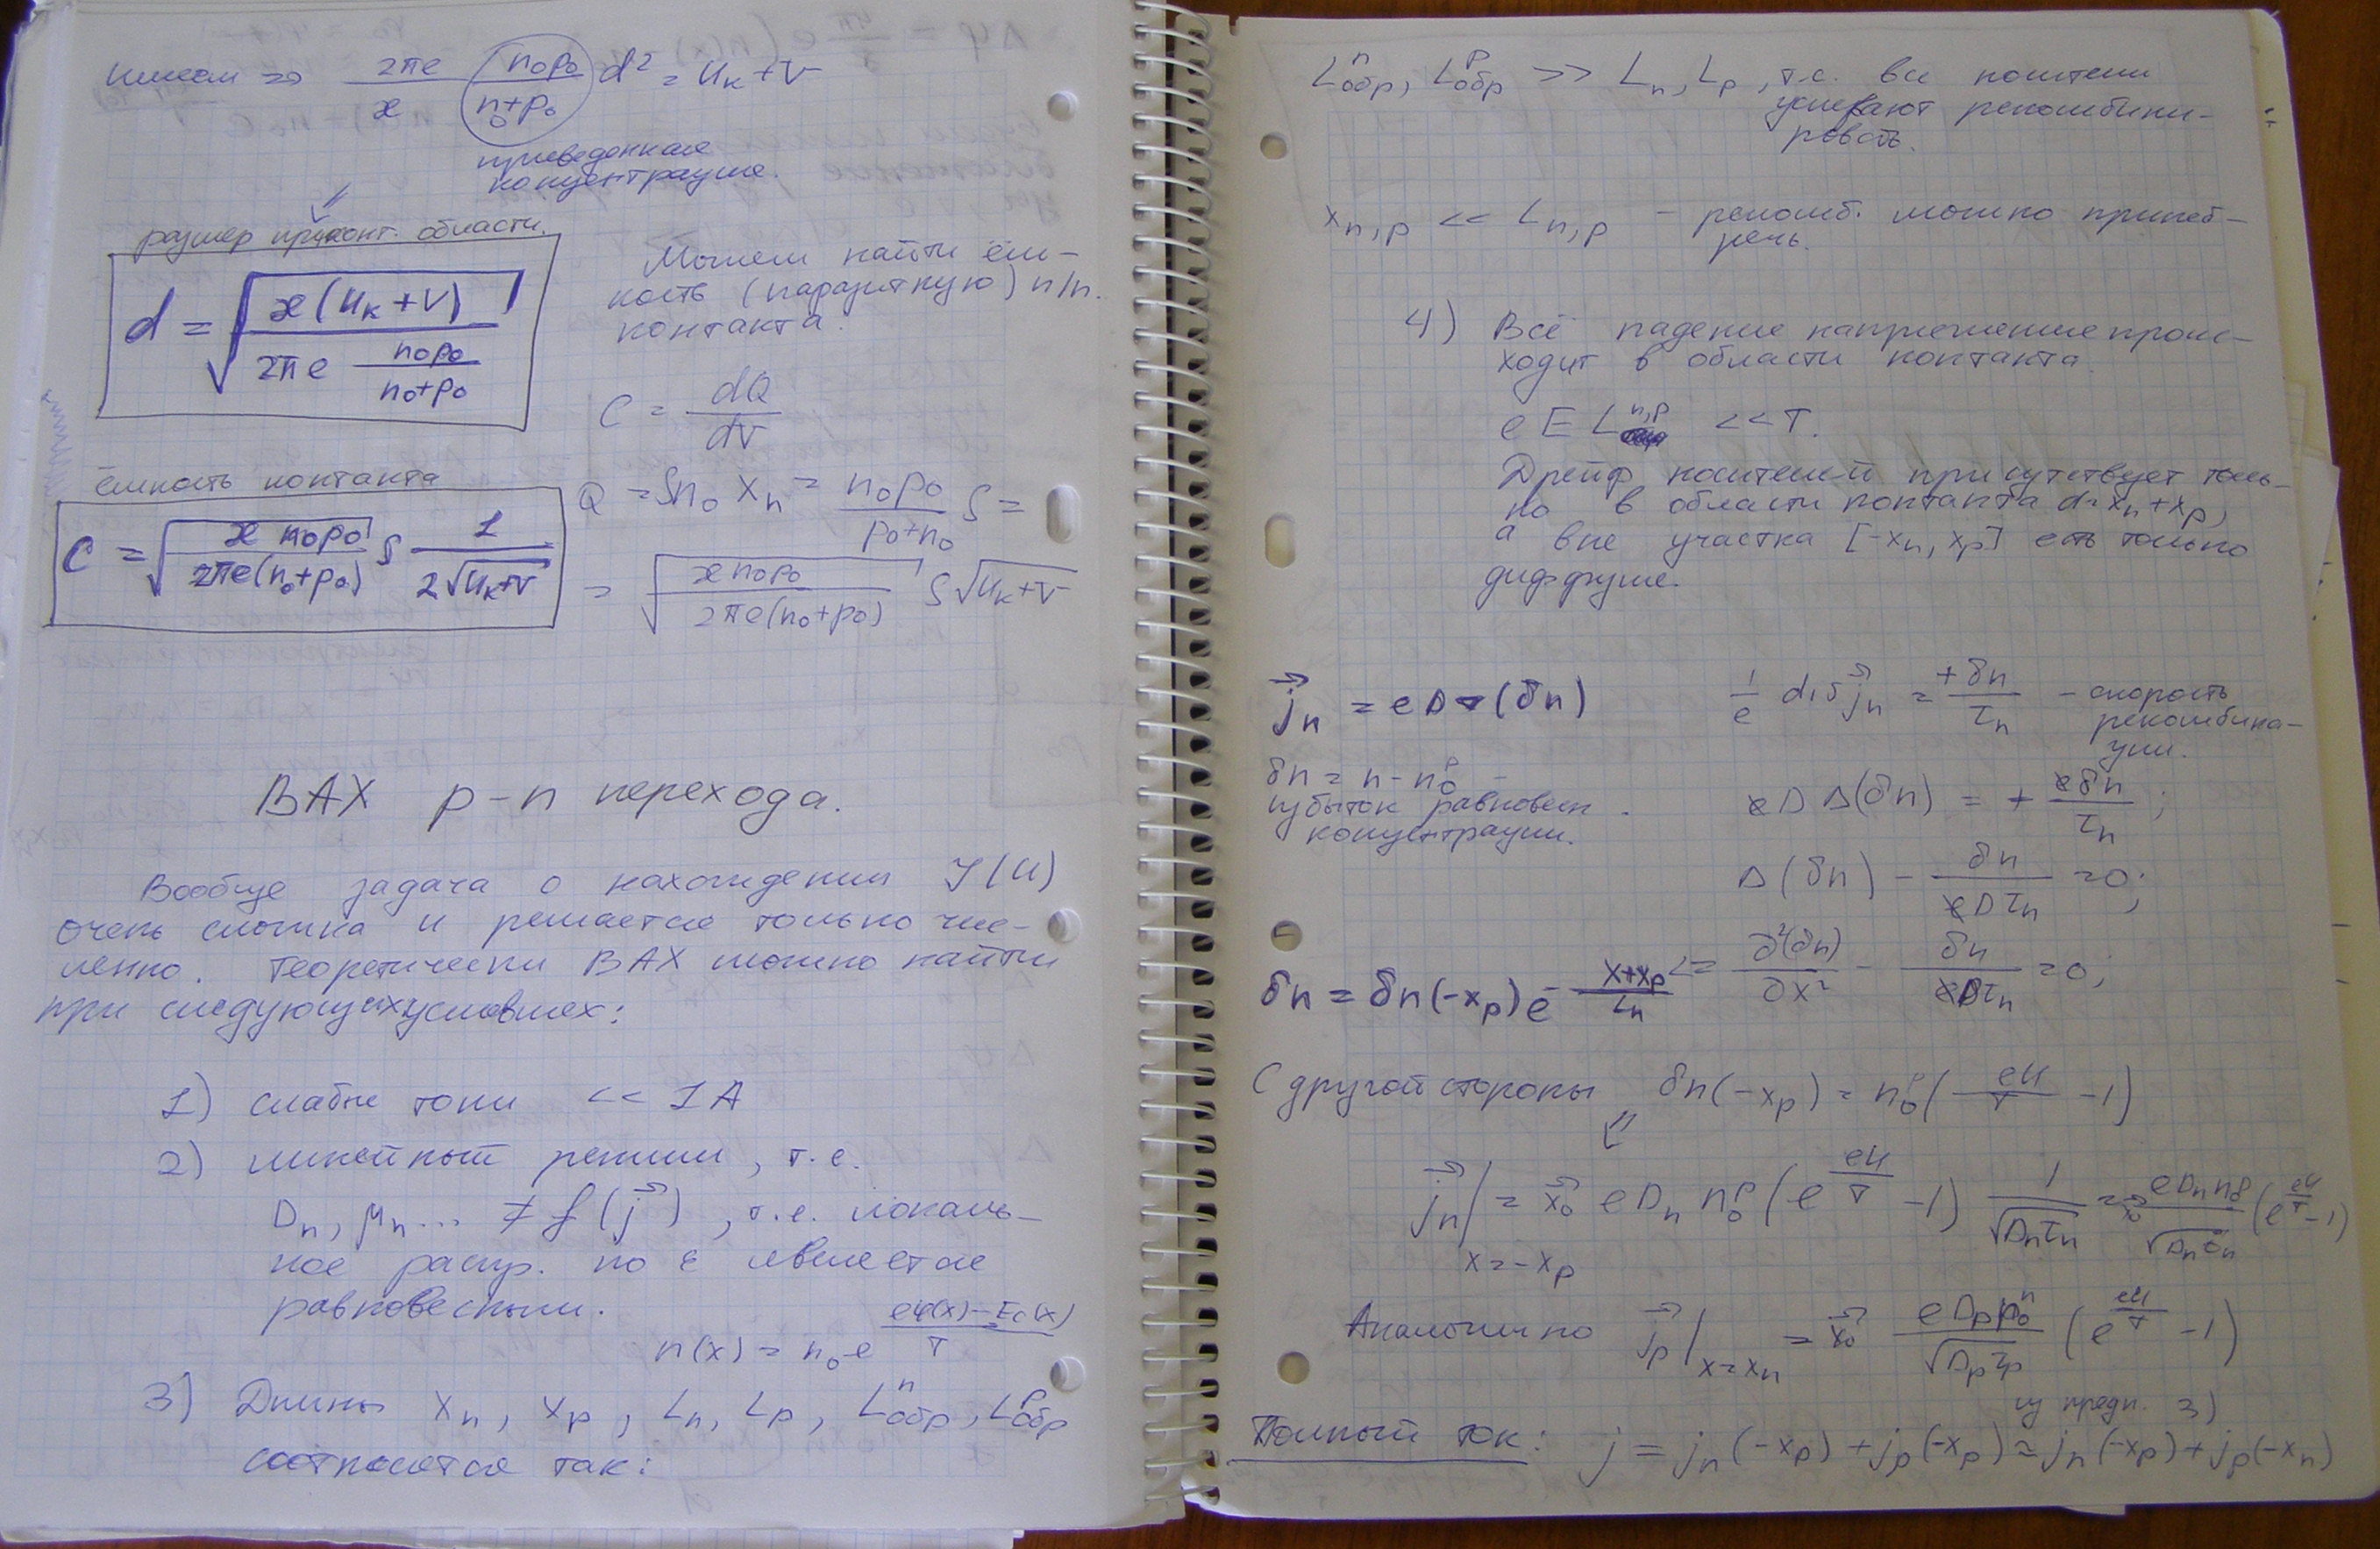 имеем => 2πe/æ n₀p₀/(n₀+p₀) d² = Uк+V
приведенная
концентрация.
размер приконт. области.
d = √(æ(Uк+V) / (2πe n₀p₀/(n₀+p₀)))
Можем найти ём-
кость (паразитную) п/п.
контакта.
C = dQ/dV
ёмкость контакта
C = √(æ n₀p₀ / 2πe(n₀+p₀)) S 1/(2√(Uк+V))
Q = Sn₀ xₙ = n₀p₀/(p₀+n₀) S =
= √(æ n₀p₀ / 2πe(n₀+p₀)) S √(Uк+V)
ВАХ p-n перехода.
Вообще задача о нахождении J(U)
очень сложна и решается только чис-
ленно. Теоретически ВАХ можно найти
при следующих условиях:
1) слабые токи << 1A
2) линейный режим, т.е.
Dₙ, μₙ... ≠ f(j⃗), т.е. локаль-
ное распр. по ε является
равновесным.
n(x) = n₀ e^((eφ(x)-Ec(x))/T)
3) Длины xₙ, xₚ, Lₙ, Lₚ, Lⁿобр, Lᵖобр
соотносятся так:
Lⁿобр, Lᵖобр >> Lₙ, Lₚ, т.е. все носители
успевают рекомбини-
ровать.
xₙ,ₚ << Lₙ,ₚ - рекомб. можно принеб-
речь.
4) Всё падение напряжение проис-
ходит в области контакта.
e E Lⁿ'ᵖ << T.
Дрейф носителей присутствует толь-
ко в области контакта d = xₙ+xₚ,
а вне участка [-xₙ, xₚ] есть только
диффузия.
j⃗ₙ = eD∇(δn) 1/e div j⃗ₙ = +δn/τₙ - скорость
рекомбина-
ции.
δn = n - n₀ᵖ -
избыток равновесн.
концентрации.
eD Δ(δn) = + eδn/τₙ;
Δ(δn) - δn/(eDτₙ) = 0;
δn = δn(-xₚ) e^(-(x+xₚ)/Lₙ) <= ∂²(δn)/∂x² - δn/(eDτₙ) = 0;
С другой стороны δn(-xₚ) = n₀ᵖ( eU/T -1)
j⃗ₙ|ₓ₌₋ₓₚ = x⃗₀ eDₙ n₀ᵖ (e^(eU/T) -1) 1/√(Dₙτₙ) = x⃗₀ eDₙn₀ᵖ/√(Dₙτₙ) (e^(eU/T) -1)
Аналогично j⃗ₚ|ₓ₌ₓₙ = x⃗₀ eDₚp₀ⁿ/√(Dₚτₚ) (e^(eU/T) -1)
из предп. 3)
Полный ток: j = jₙ(-xₚ) + jₚ(-xₚ) ≈ jₙ(-xₚ) + jₚ(-xₙ)